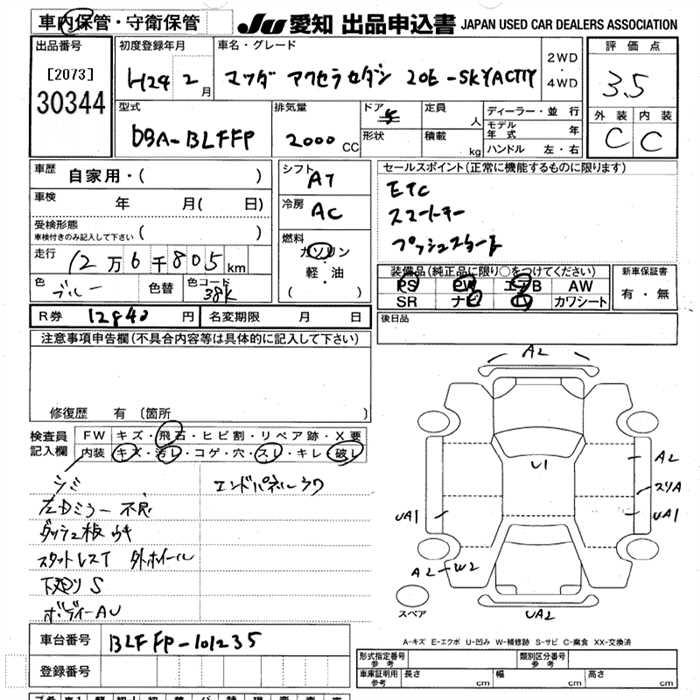 車内保管・守衛保管
JU 愛知 出品申込書 JAPAN USED CAR DEALERS ASSOCIATION
出品番号 初度登録年月 車名・グレード 2WD・4WD 評価点
[2073]
30344
H24 2月 マツダ アクセラセダン 20E-SKYACTIV 3.5
型式 排気量 ドア 定員 人 ディーラー・並行 外装 内装
DBA-BLFFP 2000CC 形状 積載 kg モデル年式 年 C C
ハンドル 左・右
車歴 自家用・( ) シフト AT セールスポイント(正常に機能するものに限ります)
車検 年 月( 日) 冷房 AC ETC
スマートキー
受検形態 車検付きのみ記入して下さい プッシュスタート
走行 12万6千805km 燃料 ガソリン・軽・油 ( )
装備品(純正品に限り○をつけてください) 新車保証書
色 ブルー 色替 色コード 38K PS PW エアB AW 有・無
SR ナビ カワシート
R券 12840円 名変期限 月 日 後日品
注意事項申告欄(不具合内容等は具体的に記入して下さい)
修復歴 有 (箇所 )
検査員記入欄 FW キズ・飛石・ヒビ割・リペア跡・X要
内装 キズ・汚れ・コゲ・穴・スレ・キレ・破れ
シミ エンドパネルワク
左Dミラー不良
ダッシュ板ウキ
スタットレスT 外ホイール
下廻りS
ボディーAU
A2
U1
A2
スリA
UA1 UA1
A2 W2
スペア UA2
A-キズ E-エクボ U-凹み W-補修跡 S-サビ C-腐食 XX-交換済
車台番号 BLFFP-101235
登録番号
形式指定番号 参考 類別区分番号 参考
車庫証明用 参考 長さ cm 幅 cm 高さ cm